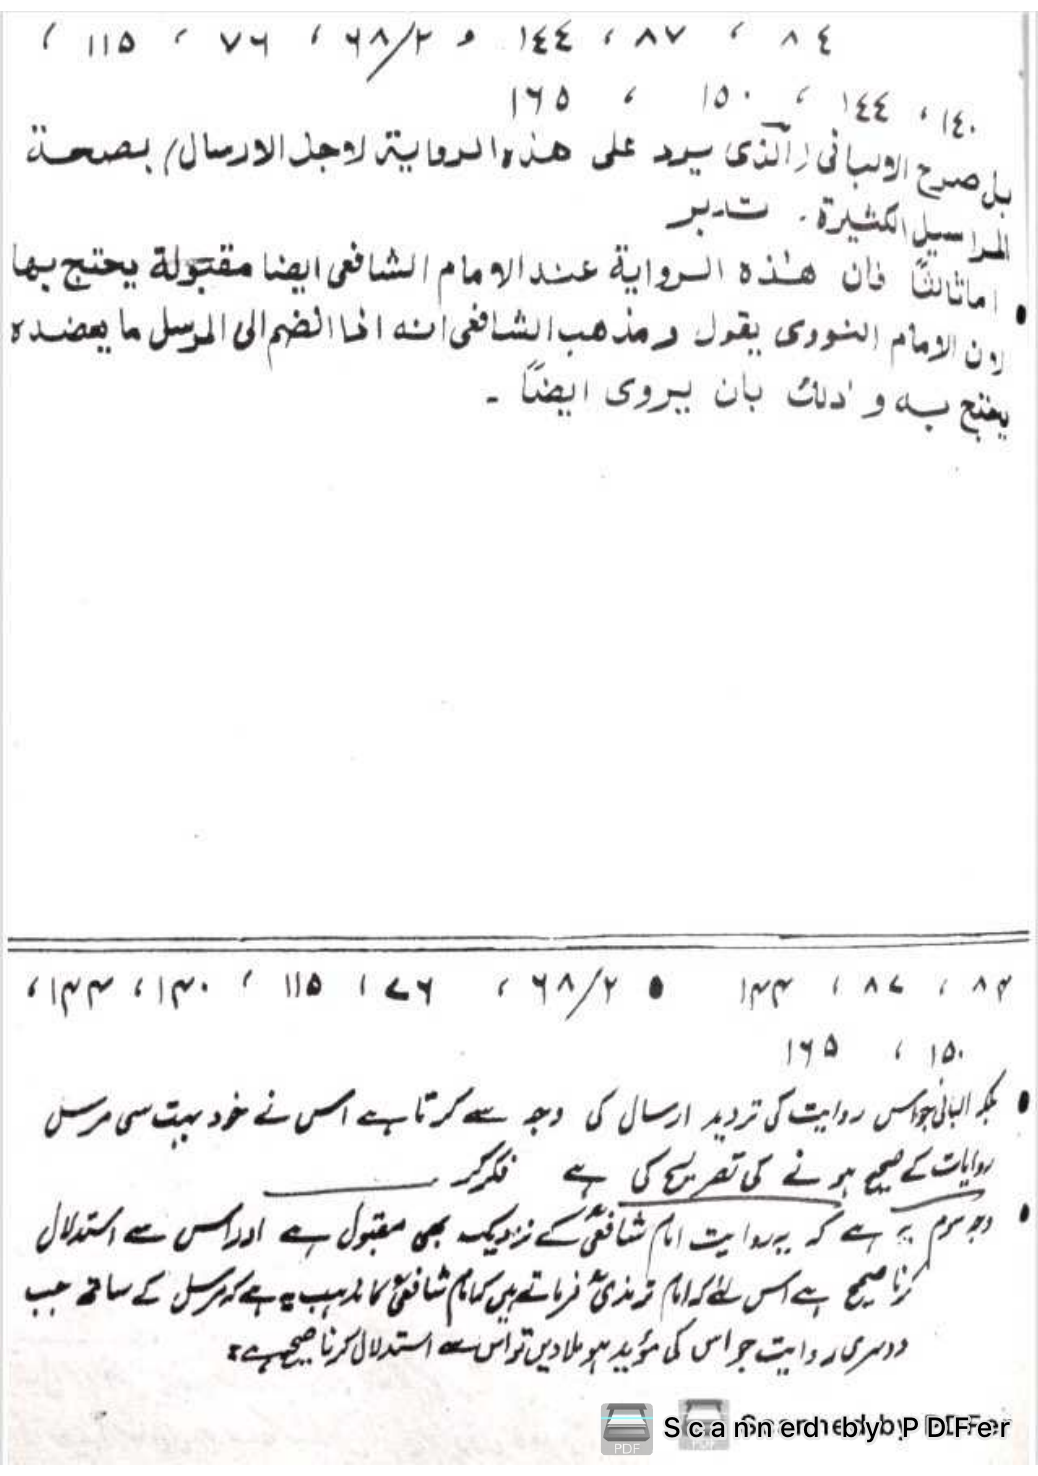 ٨٤ ، ٨٧ ، ١٤٤ و ٦٨/٢ ، ٧٦ ، ١١٥ ،
١٤٠ ، ١٤٤ ، ١٥٠ ، ١٦٥
بل صرح الالبانی (الذی یرد علی هذه الروایة لاجل الارسال) بصحة
المراسیل الکثیرة ۔ تدبر
• اما ثالثاً فان هذه الروایة عند الامام الشافعی ایضا مقبولة یحتج بها
لان الامام النووی یقول و مذهب الشافعی انه اذا انضم الی المرسل ما یعضده
یحتج به و ذلک بان یروی ایضاً ۔
۸۴ ، ۸۷ ، ۱۴۴ • ۶۸/۲ ، ۷۶ ، ۱۱۵ ، ۱۴۰ ، ۱۴۴ ،
۱۵۰ ، ۱۶۵
• بلکہ البانی جو اس روایت کی تردید ارسال کی وجہ سے کرتا ہے اس نے خود بہت سی مرسل
روایات کے صحیح ہونے کی تصریح کی ہے فکر کر
• وجہ سوم یہ ہے کہ یہ روایت امام شافعیؒ کے نزدیک بھی مقبول ہے اور اس سے استدلال
کرنا صحیح ہے اس لئے کہ امام ترمذیؒ فرماتے ہیں کہ امام شافعیؒ کا مذہب یہ ہے کہ مرسل کے ساتھ جب
دوسری روایت جو اس کی مؤید ہو ملا دیں تو اس سے استدلال کرنا صحیح ہے۔
Scanned by PDFer